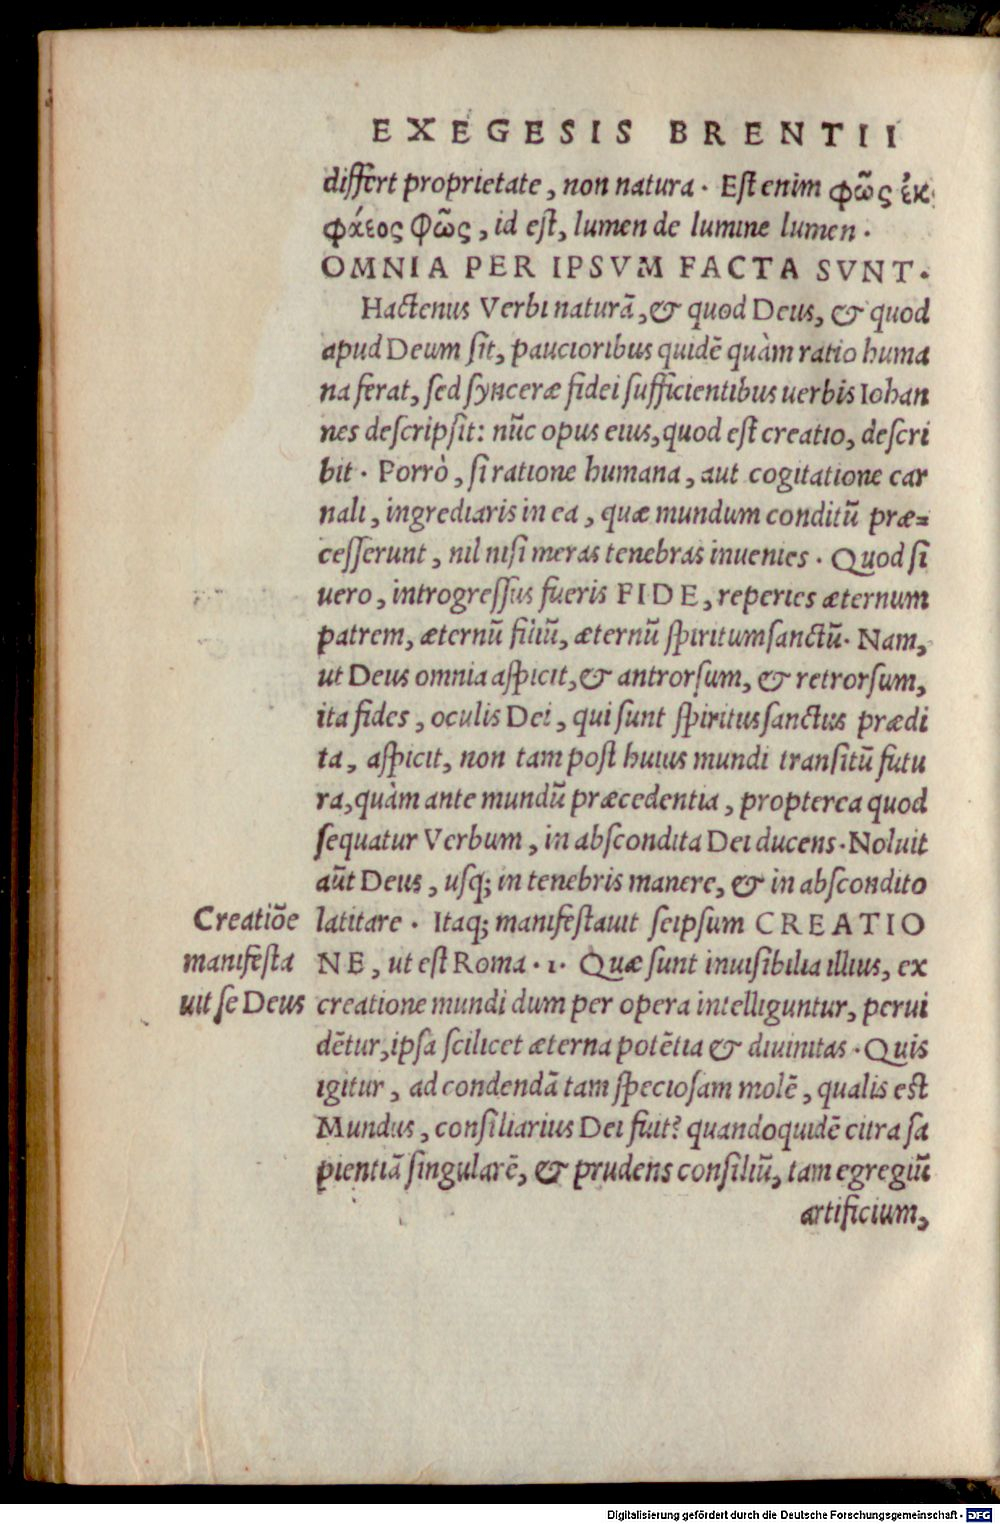 EXEGESIS BRENTII
differt proprietate, non natura. Est enim φῶς ἐκ
φάεος φῶς, id est, lumen de lumine lumen.
OMNIA PER IPSVM FACTA SVNT.
Hactenus Verbi naturã, & quod Deus, & quod
apud Deum sit, paucioribus quidẽ quàm ratio huma
na ferat, sed synceræ fidei sufficientibus uerbis Iohan
nes descripsit: nũc opus eius, quod est creatio, descri
bit. Porrò, si ratione humana, aut cogitatione car
nali, ingrediaris in ea, quæ mundum conditũ præ=
cesserunt, nil nisi meras tenebras inuenies. Quod si
uero, introgressus fueris FIDE, reperies æternum
patrem, æternũ filiũ, æternũ spiritumsanctũ. Nam,
ut Deus omnia aspicit, & antrorsum, & retrorsum,
ita fides, oculis Dei, qui sunt spiritussanctus prædi
ta, aspicit, non tam post huius mundi transitũ futu
ra, quàm ante mundũ præcedentia, propterea quod
sequatur Verbum, in abscondita Dei ducens. Noluit
aũt Deus, usq; in tenebris manere, & in abscondito
latitare. Itaq; manifestauit seipsum CREATIO
NE, ut est Roma. 1. Quæ sunt inuisibilia illius, ex
creatione mundi dum per opera intelliguntur, perui
dẽtur, ipsa scilicet æterna potẽtia & diuinitas. Quis
igitur, ad condendã tam speciosam molẽ, qualis est
Mundus, consiliarius Dei fuit? quandoquidẽ citra sa
pientiã singularẽ, & prudens consiliũ, tam egregiũ
artificium,
Creatiõe
manifesta
uit se Deus
Digitalisierung gefördert durch die Deutsche Forschungsgemeinschaft - DFG